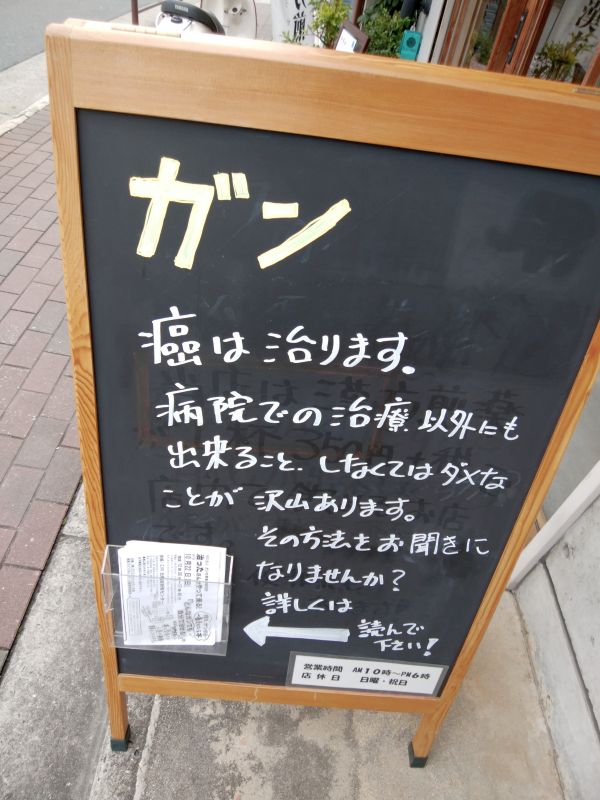 ガン
癌は治ります。
病院での治療以外にも
出来ること、しなくてはダメな
ことが沢山あります。
その方法をお聞きに
なりませんか?
詳しくは
読んで
下さい!
営業時間 AM10時〜PM6時
店休日 日曜・祝日